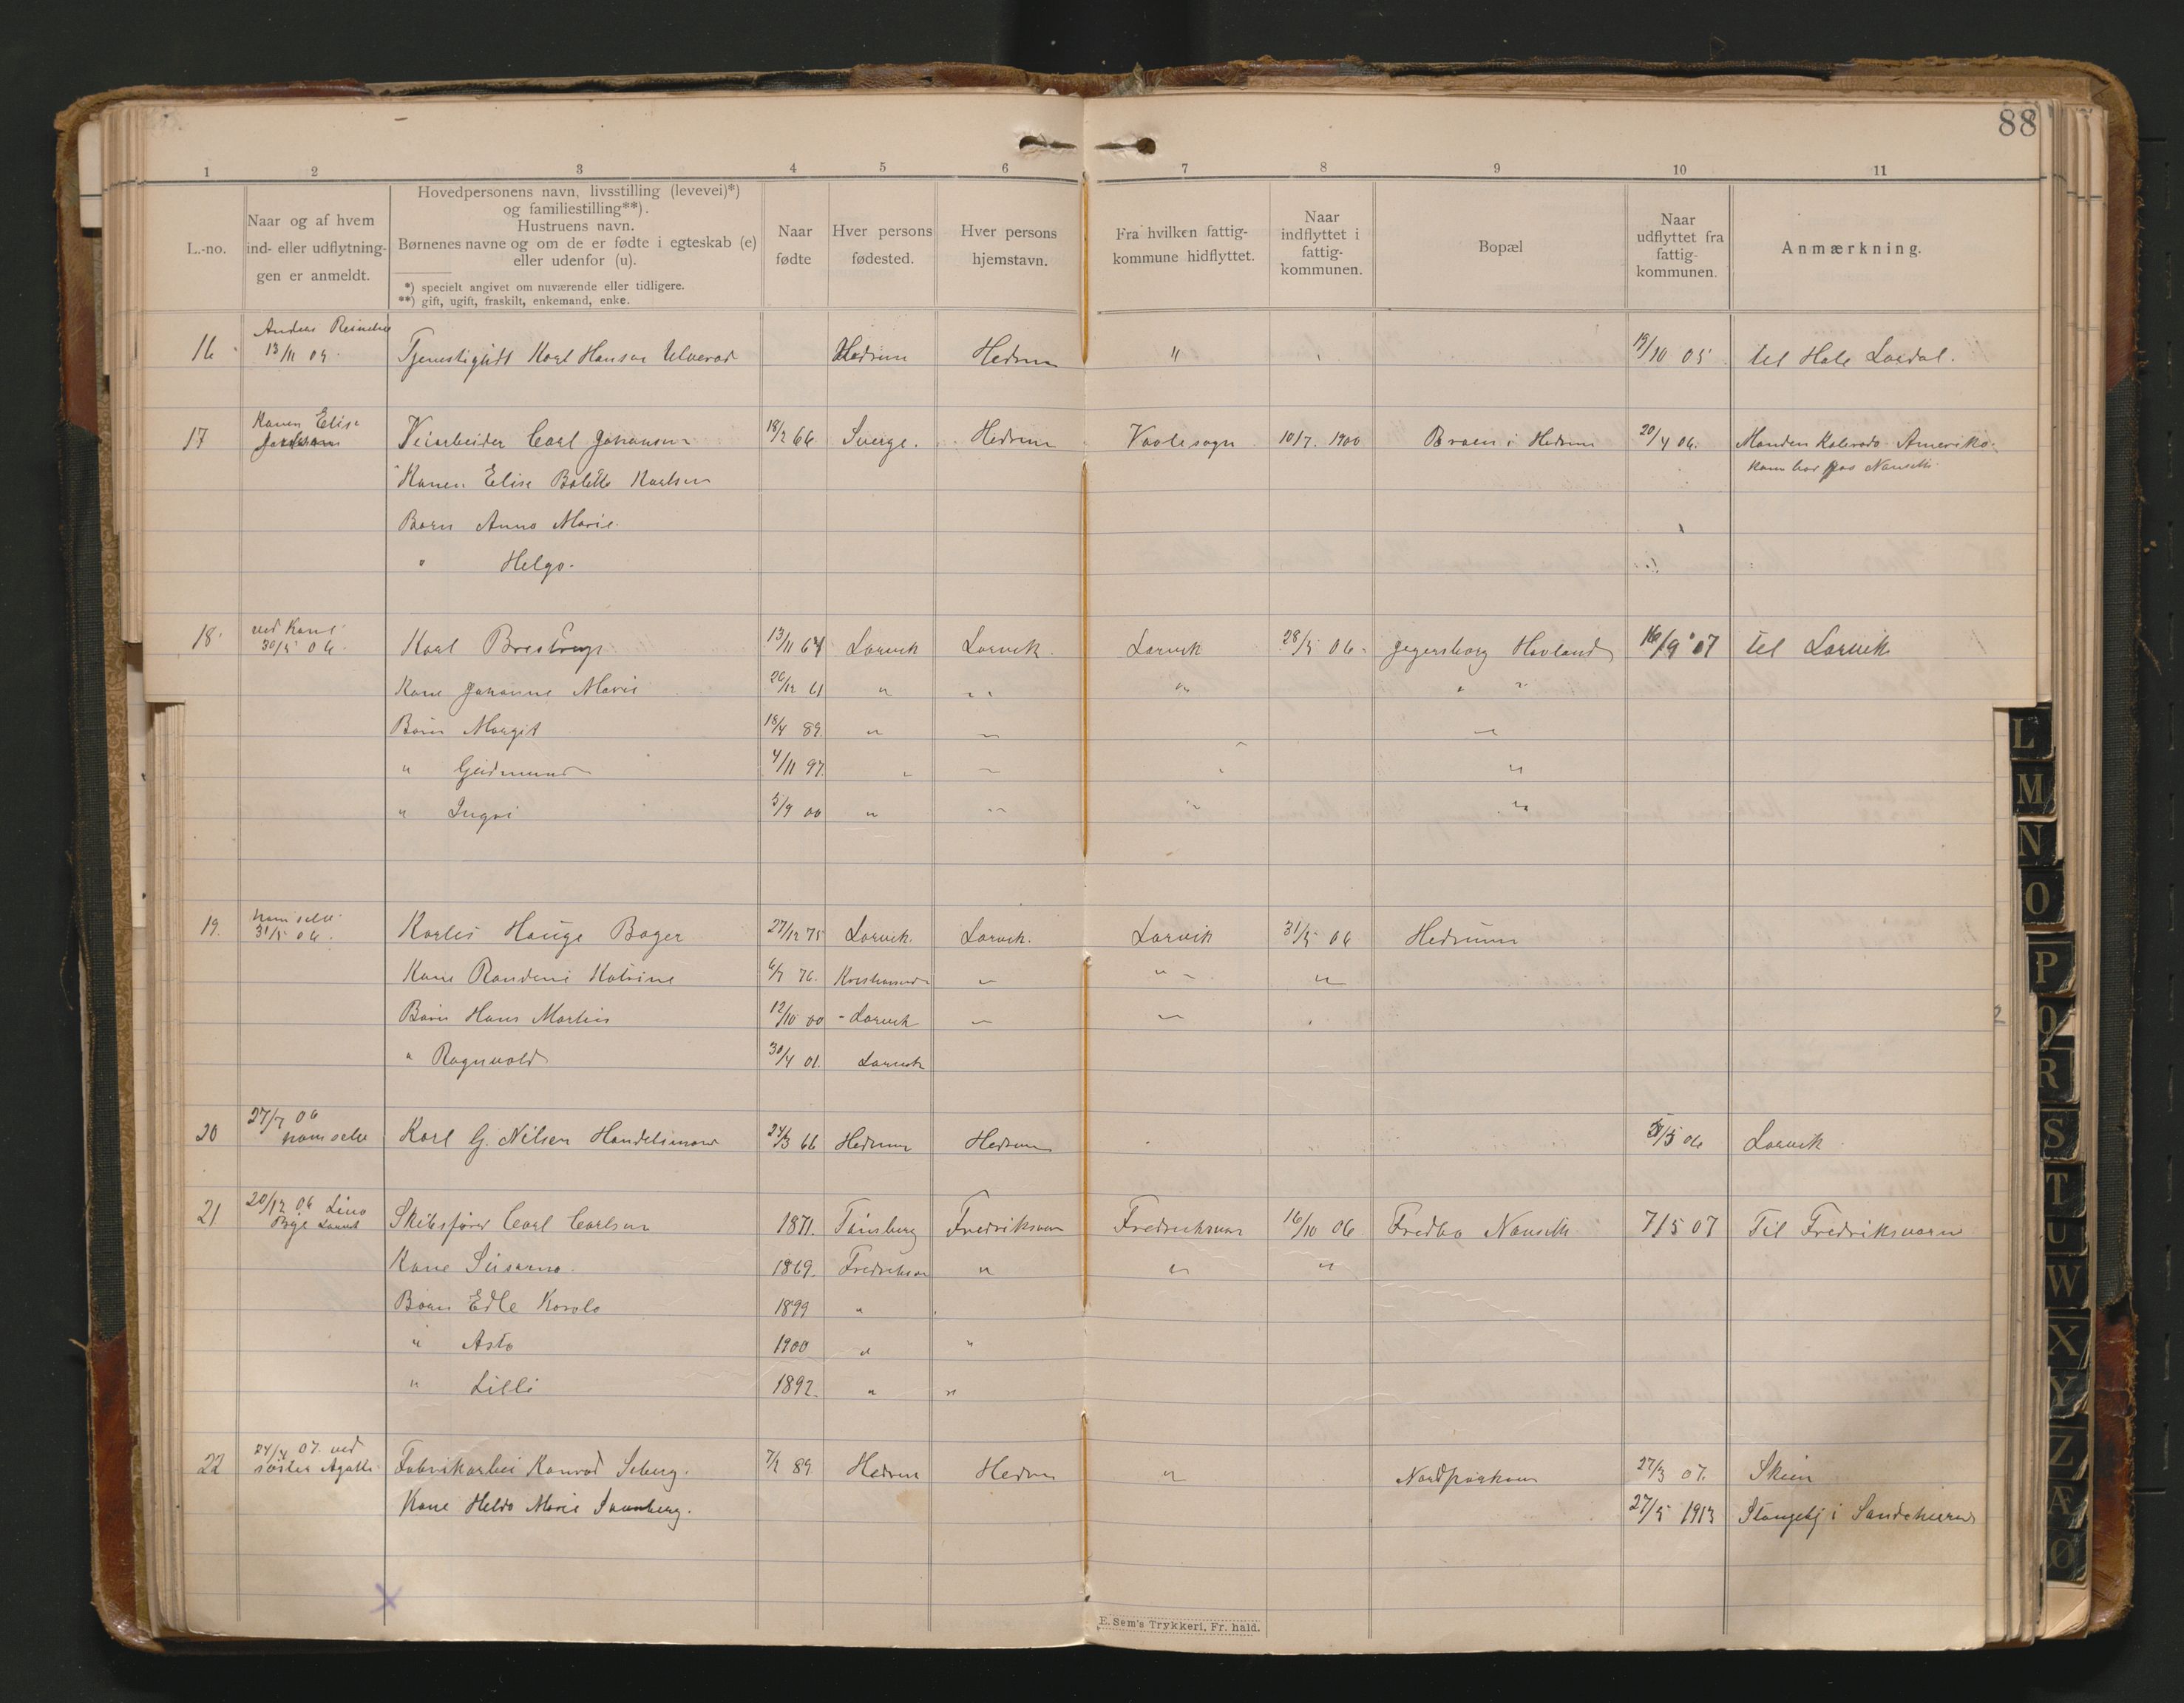 88
1 2 3 4 5 6 7 8 9 10 11
L.-no.
Naar og af hvem
ind- eller udflytnin-
gen er anmeldt.
Hovedpersonens navn, livsstilling (levevei)*)
og familiestilling**).
Hustruens navn.
Børnenes navne og om de er fødte i egteskab (e)
eller udenfor (u).
*) specielt angivet om nuværende eller tidligere.
**) gift, ugift, fraskilt, enkemand, enke.
Naar
fødte
Hver persons
fødested.
Hver persons
hjemstavn.
Fra hvilken fattig-
kommune hidflyttet.
Naar
indflyttet i
fattig-
kommunen.
Bopæl
Naar
udflyttet fra
fattig-
kommunen.
Anmærkning.
Anders
16 13/11 05. Karl Hansen Hedrum Hedrum " 19/10 05 til Hole Lardal.
Konen Elise
17 Veiarbeider Carl Johansen 18/2 66 Sverge. Hedrum Vaale sogn 10/7. 1900 Braen i Hedrum 20/4 06. Manden Kolorado Amerika.
Konen Elise Karlsen
Kone bor paa Nanseth
Børn Anna Marie.
" Helga.
18 ved Kone
30/5 06. Karl 13/11 64 Larvik Larvik. Larvik 28/5 06. Hovland 16/9 07 til Larvik
Kone Johanne Marie 26/12 61 " " " " "
Børn Margit 18/4 89. " " "
" Gudmund 4/11 97. " " " "
" Ingvi 5/9 00 " " " "
19. ham selv.
31/5 06. Karles Hauge Bager 27/12 75 Larvik. Larvik. Larvik 31/5 06 Hedrum
Kone Randine Katrine 6/7 76. " " "
Børn Hans Martin 12/10 00 - Larvik " "
" Ragnvald 30/4 01. Larvik
20 27/7 06
ham selv Karl G. Nilsen Handelsmand 24/3 66 Hedrum Hedrum /5 06 Larvik.
21 20/12 06 Lina
Larvik Skibsfører Carl Carlsen 1871. Tønsberg Fredriksvarn Fredriksvarn 16/10 06 Fredbo Nanseth 7/5 07 Til Fredriksvarn
Kone Susanna. 1869. " " "
Børn Edle Karola 1899 "
" Asta 1900 " "
" Lilli 1892. " "
22 24/4 07. ved
søster Agathe Fabrikarbei Konrad Seberg. 7/2 89 Hedrum Hedrum " 27/3 07. Skien
Kone Helda Marie 27/5 1913 i Sandeherred
E. Sem's Trykkeri, Fr. hald.
L
M
N
O
P
Q
R
S
T
U
W
X
Y
Z
Æ
Ø